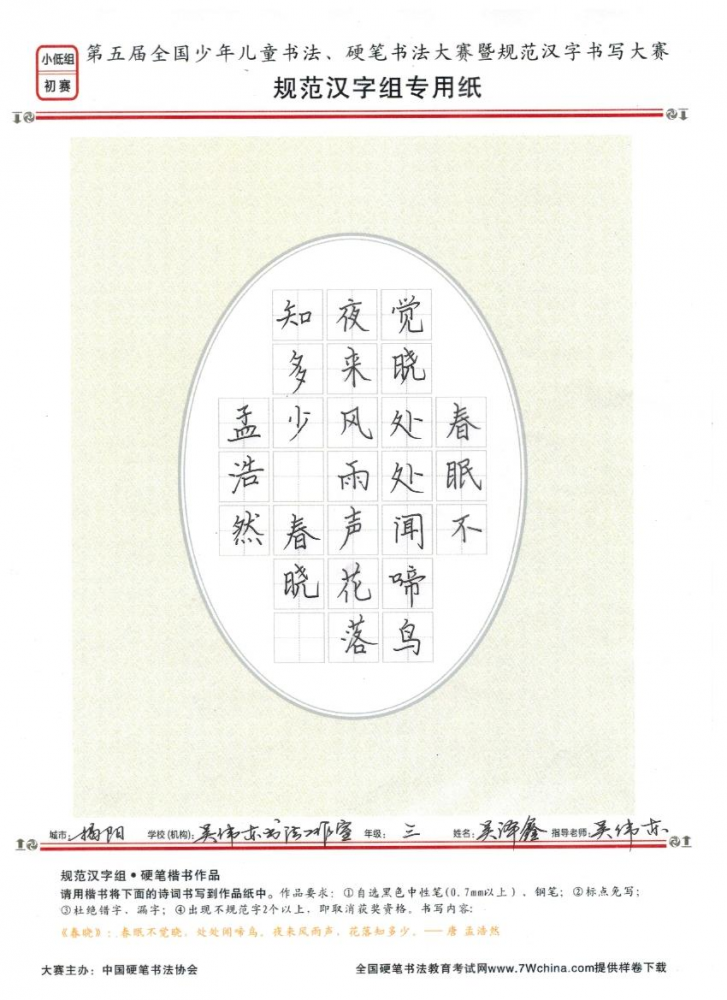 小低组
初赛
第五届全国少年儿童书法、硬笔书法大赛暨规范汉字书写大赛
规范汉字组专用纸
春眠不
觉晓处处闻啼鸟
夜来风雨声花落
知多少 春晓
孟浩然
城市：揭阳 学校(机构)：吴伟东书法工作室 年级：三 姓名：吴泽鑫 指导老师：吴伟东
规范汉字组●硬笔楷书作品
请用楷书将下面的诗词书写到作品纸中。作品要求：①自选黑色中性笔(0.7mm以上)、钢笔；②标点免写；
③杜绝错字、漏字；④出现不规范字2个以上，即取消获奖资格。书写内容：
《春晓》：春眠不觉晓，处处闻啼鸟。夜来风雨声，花落知多少。——唐 孟浩然
大赛主办：中国硬笔书法协会
全国硬笔书法教育考试网www.7Wchina.com提供样卷下载